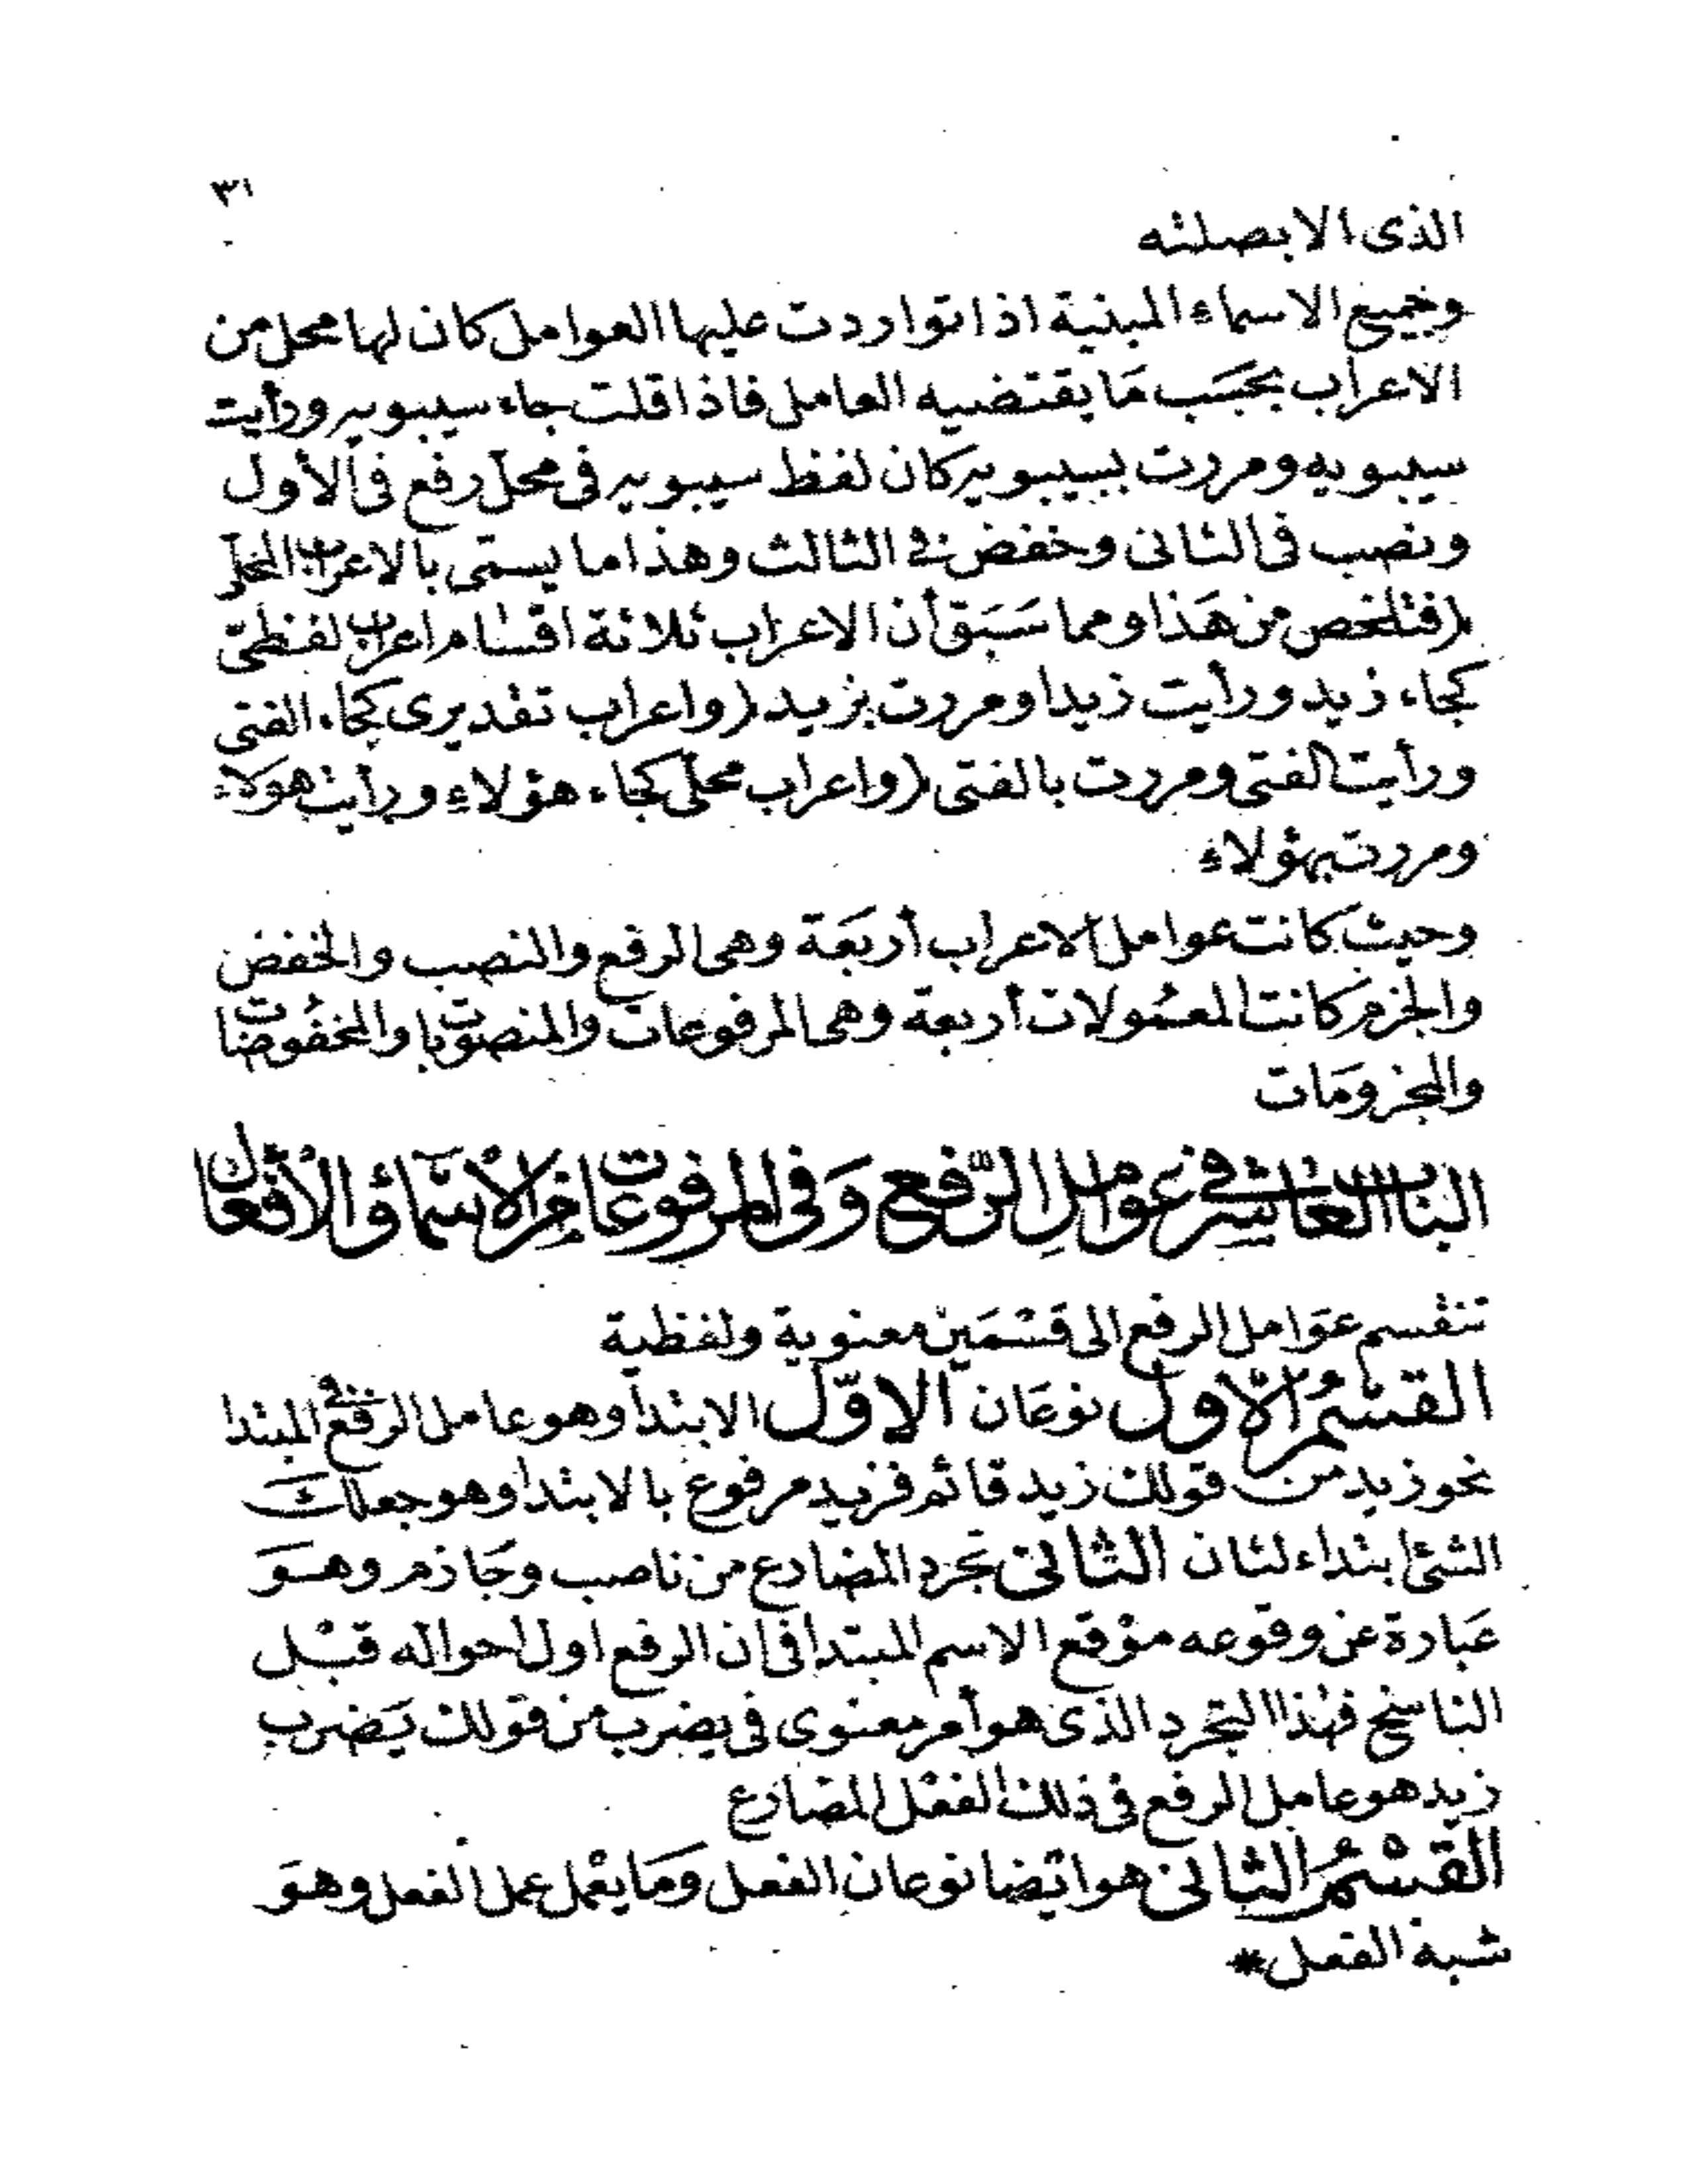 ٣١
الذى الا بصلته
وجميع الاسماء المبنية اذا تواردت عليها العوامل كان لها محل من
الاعراب بحسَب مَا يقتضيه العامل فاذا قلت جاء سيبويه ورأيت
سيبويه ومررت بسيبويه كان لفظ سيبويه فى محل رفع فى الأول
ونصب فى الثانى وخفض فى الثالث وهذا ما يسمّى بالاعراب المحلّى
(فتلخص من هَذا ومما سَبَق أن الاعراب ثلاثة اقسام اعراب لفظىّ
كجاء زيد ورأيت زيدا ومررت بزيد (واعراب تقديرى كجاء الفتى
ورأيت الفتى ومررت بالفتى (واعراب محلّى كجاء هؤلاء ورأيت هؤلاء
ومررت بهؤلاء
وحيث كانت عوامل الاعراب أربَعَة وهى الرفع والنصب والخفض
والجزم كانت المعمُولات أربعة وهى المرفوعات والمنصوبات والمخفُوضات
والمجزومَات
الباب العاشر فى عوامل الرّفع وَفى المرفوعات من الاسْماء والأفعَال
تنقسم عوَامل الرفع الى قسْمَين معنوية ولفظية
القسْمُ الأول نوعَان الاوّل الابتدا وهو عامل الرفع فى المبتدا
نحو زيد من قولك زيد قائم فزيد مرفوع بالابتدا وهو جعلك
الشئ ابتداء لثان الثانى تجرد المضارع من ناصب وجَازم وهوَ
عَبارة عن وقوعه موْقع الاسم المبتدا فى ان الرفع اول احواله قبْل
الناسخ فهٰذا التجرد الذى هو أمر معنوى فى يضرب من قولك يَضرب
زيد هو عامل الرفع فى ذلك الفعْل المضارع
القسْمُ الثانى هو ايْضا نوعان الفعل ومَا يعْمل عمل الفعل وهوَ
شبه الفعل *